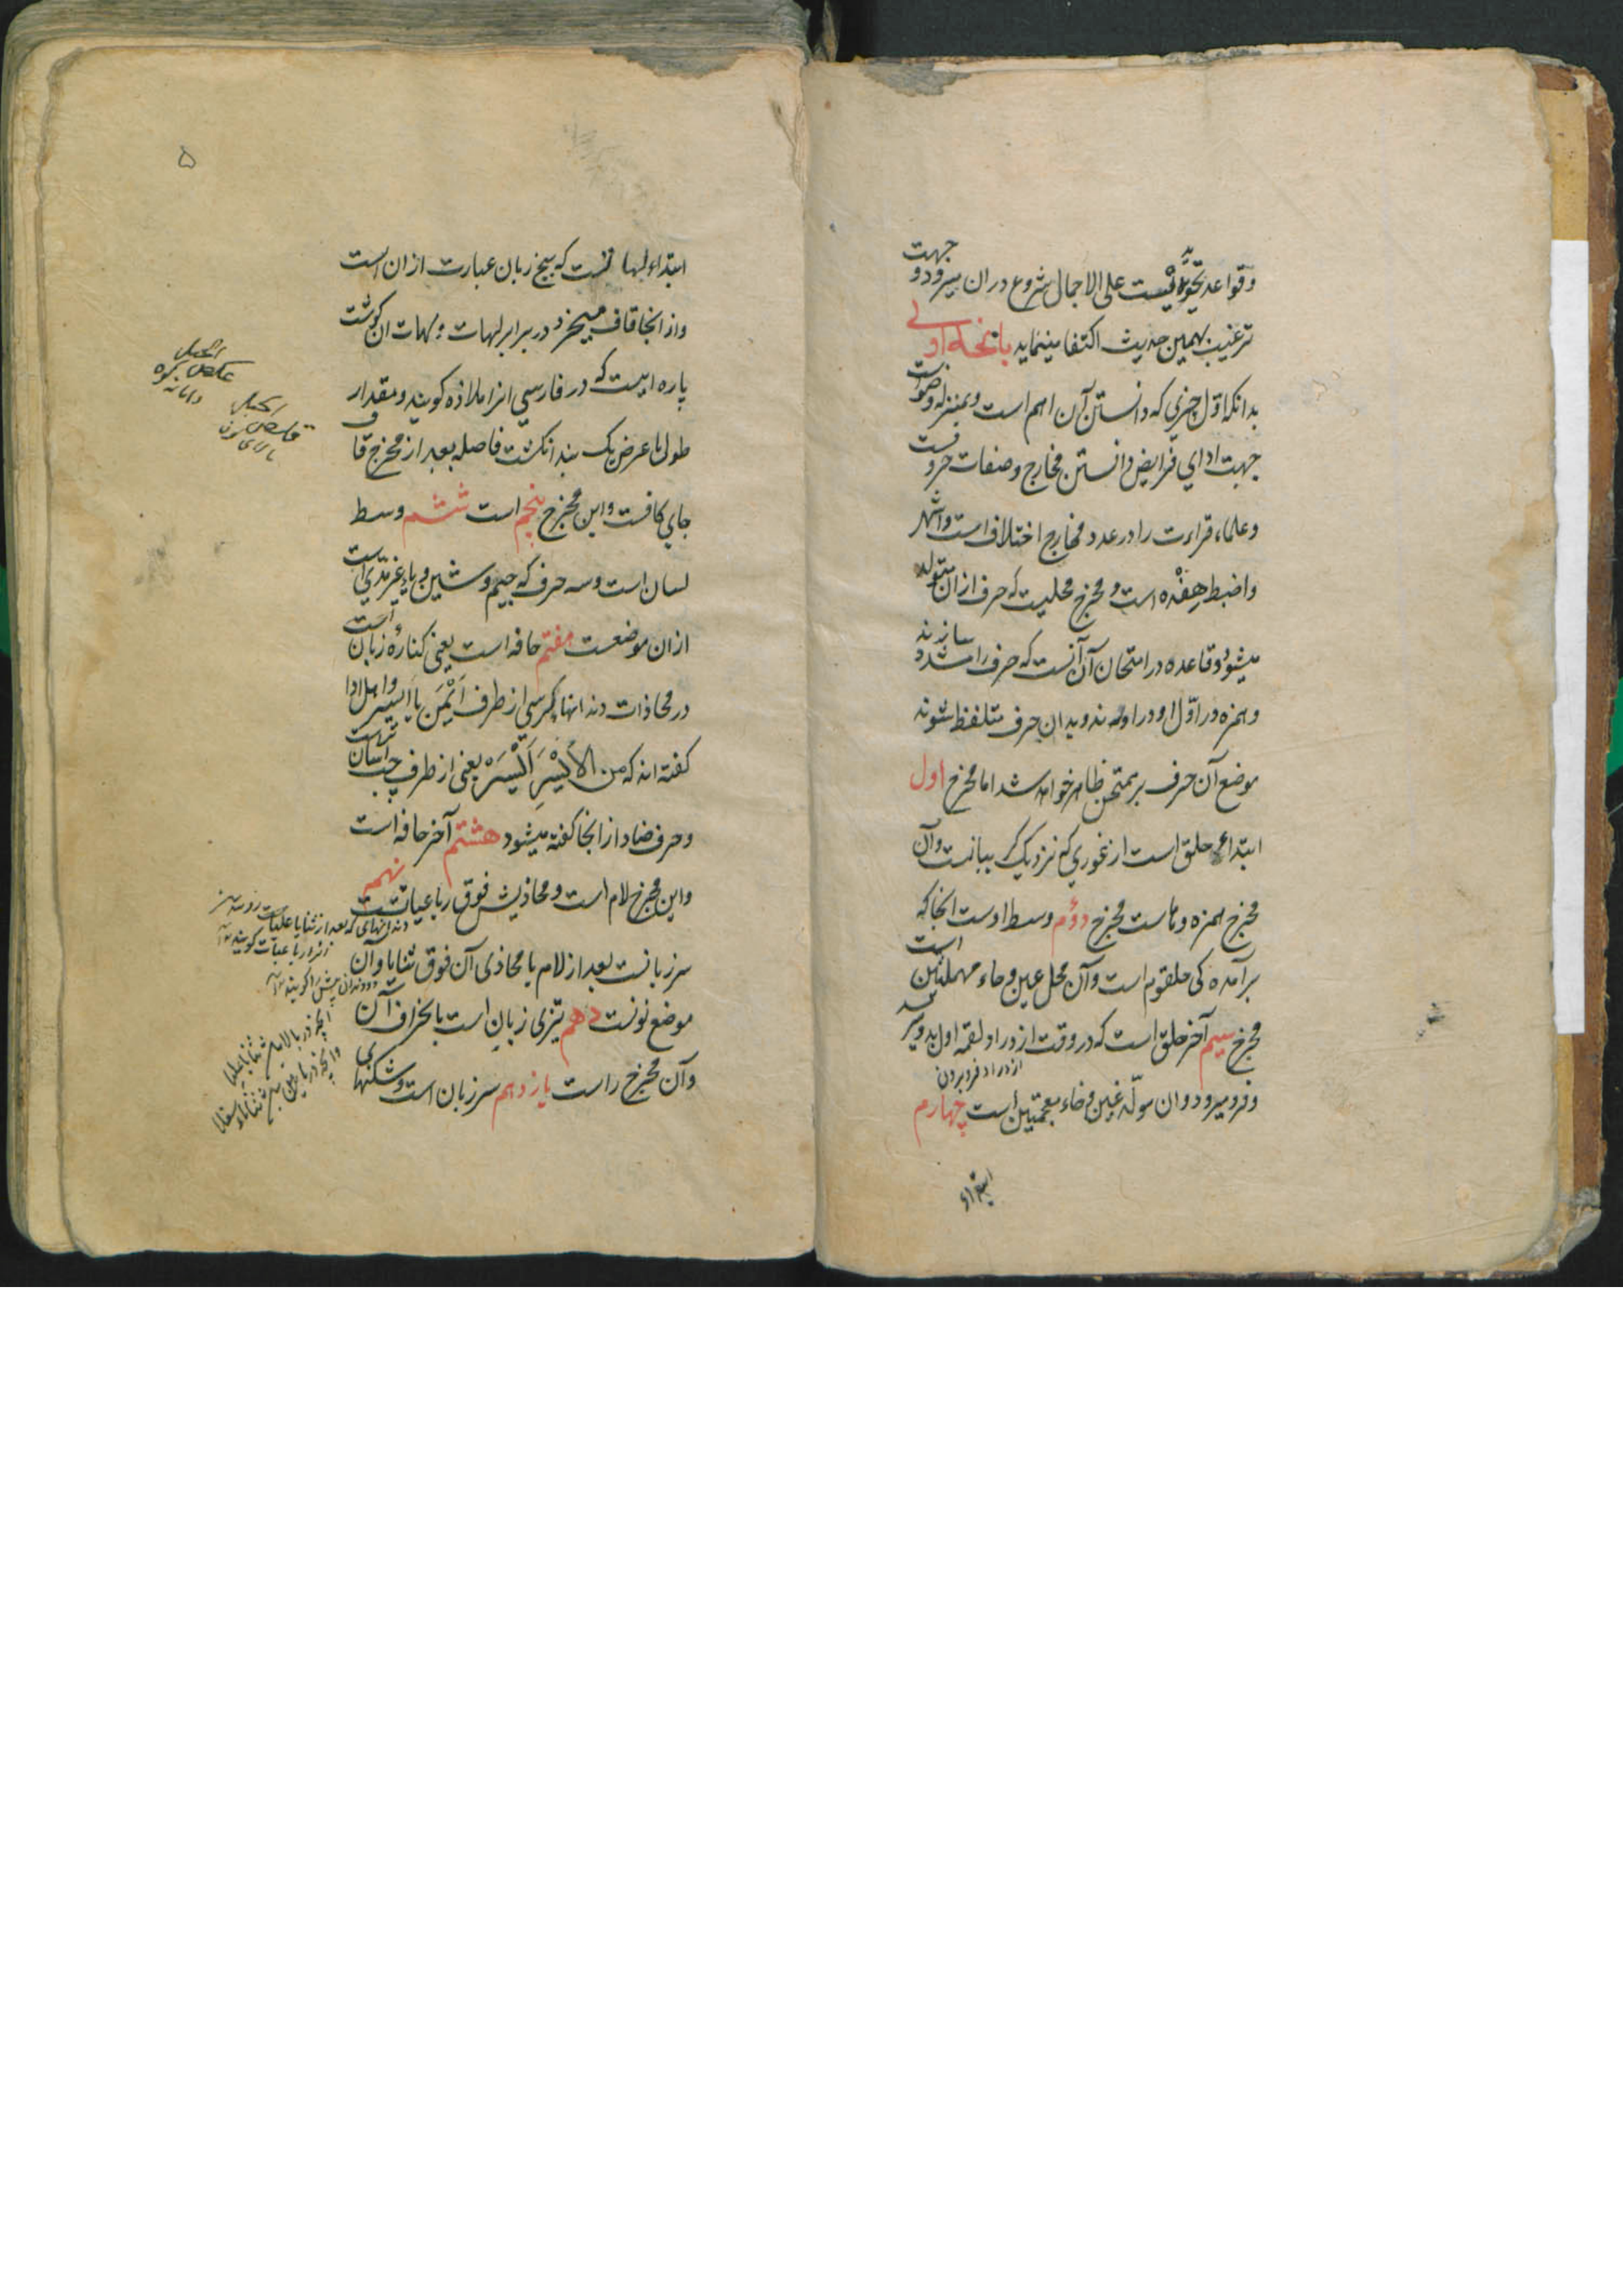 وقواعد تجوید نیست علی الاجمال شروع دران میرود و جهت
ترغیب بهمین حدیث اکتفا مینماید اولی
بدانکه اول چیزی که دانستن آن اهم است وبمنزله وضوست
جهت ادای فرایض دانستن مخارج وصفات حروفست
وعلماء قراءت را در عدد مخارج اختلاف است واشهر
واضبط هفده است ومخرج محلیست که حرف ازان متولد
میشود وقاعده در امتحان آن آنست که حرف را مشدد سازند
وهمزه در اول او دراورند وبدان حرف متلفظ شوند
موضع آن حرف بر ممتحن ظاهر خواهد شد اما مخرج اول
ابتداء حلق است از غوری که نزدیک بیانست وآن
مخرج همزه وهاست مخرج دوم وسط اوست انجا که
برآمده کی حلقوم است وآن محل عین وحاء مهملتین است
مخرج سیم آخر حلق است که در وقت ازدراد لقمه اول بدو میرسد
ازدراد فرو بردن
وفرو میرود وان مولد غین وخاء معجمتین است چهارم
ابتداء
۵
ابتداء لهاتست که بیخ زبان عبارت ازان است
واز انجا قاف میخیزد در برابر لهات ولهات ان گوشت
پاره ایست که در فارسی انرا ملاذه کویند ومقدار
طول با عرض یک بند انکشت فاصله بعد از مخرج قاف
جای کافست واین مخرج پنجم است ششم وسط
لسان است وسه حرف که جیم وشین ویاء غیر مدی است
ازان موضعست هفتم حافه است یعنی کناره زبان است
در محاذات دندانهای کرسی از طرف ایمن یا ایسر واهل ادا
کفته اند که من الأیسر الیسر یعنی از طرف چپ اسان ترست
وحرف ضاد از انجا کفته میشود هشتم آخر حافه است
واین مخرج لام است ومحاذیش فوق رباعیاتست نهم
سر زبانست بعد از لام با محاذی آن فوق ثنایا وآن
موضع نونست دهم تیزی زبان است با نحراف آن
وآن مخرج راست یازدهم سر زبان است وشکنهای
دندانهای که بعد از ثنایا علیاست
انرا رباعیات کویند